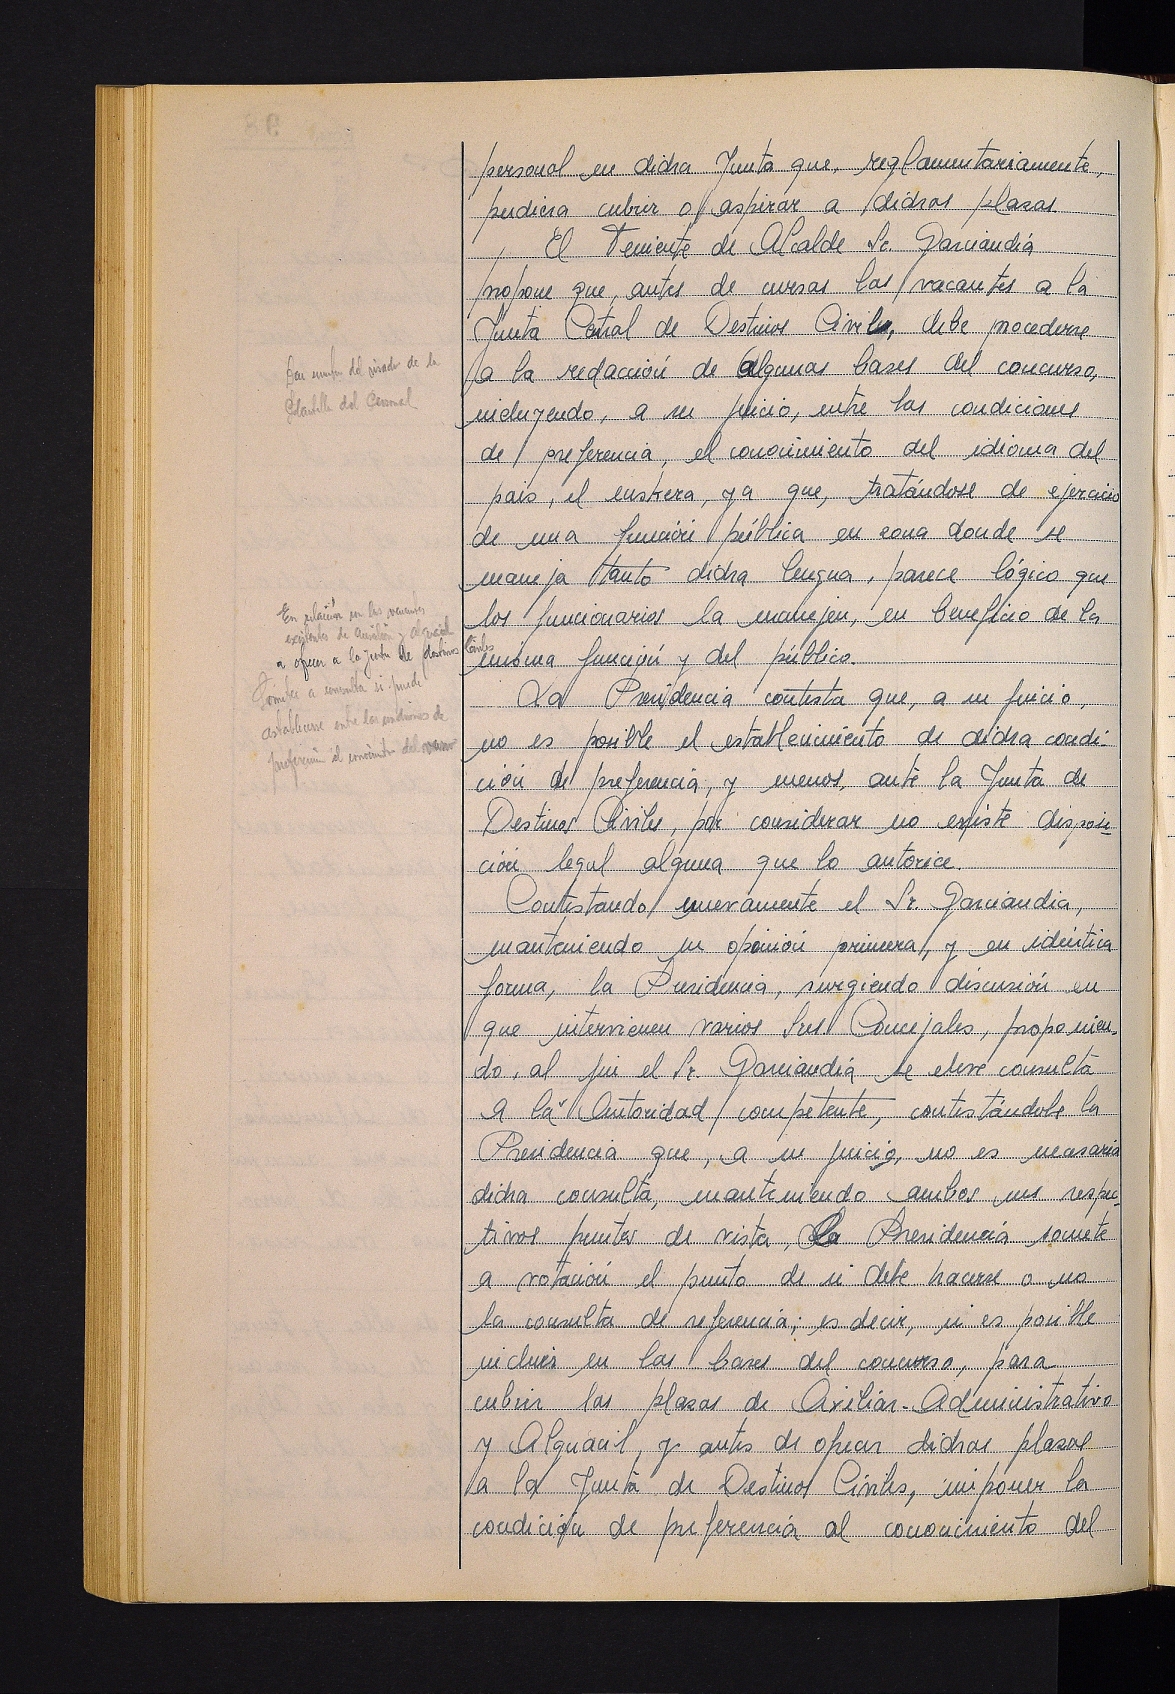 personal en dicha Junta que, reglamentariamente,
pudiera cubrir o aspirar a dichas plazas.
El Teniente de Alcalde Sr. Garciandía
propone que, antes de cursar las vacantes a la
Junta Central de Destinos Civiles, debe procederse
a la redacción de algunas bases del concurso,
incluyendo, a su juicio, entre las condiciones
de preferencia, el conocimiento del idioma del
pais, el euskera, ya que, tratándose de ejercicio
de una función pública en zona donde se
maneja tanto dicha lengua, parece lógico que
los funcionarios la manejen, en beneficio de la
misma función y del público.
La Presidencia contesta que, a su juicio,
no es posible el establecimiento de dicha condi-
ción de preferencia, y menos, ante la Junta de
Destinos Civiles, por considerar no existe disposi-
ción legal alguna que lo autorice.
Contestando nuevamente el Sr. Garciandia,
manteniendo su opinión primera, y en idéntica
forma, la Presidencia, surgiendo discusión en
que intervienen varios Sres Concejales, proponien-
do, al fin el Sr. Garciandía se eleve consulta
a la Autoridad competente, contestándole la
Presidencia que, a su juicio, no es necesaria
dicha consulta, manteniendo ambos sus respec-
tivos puntos de vista, La Presidencia somete
a votación el punto de si debe hacerse o no
la consulta de referencia; es decir, si es posible
incluir en las bases del concurso, para
cubrir las plazas de Auxiliar-Administrativo
y Alguacil, y antes de ofrecer dichas plazas
a la Junta de Destinos Civiles, imponer la
condición de preferencia al conocimiento del
del visado de la
Plantilla del Personal
En relación en las vacantes
existentes de auxiliar y alguacil
a ofrecer a la Junta de Destinos Civiles
a consulta si puede
establecerse entre las condiciones de
preferencia el conocimiento del